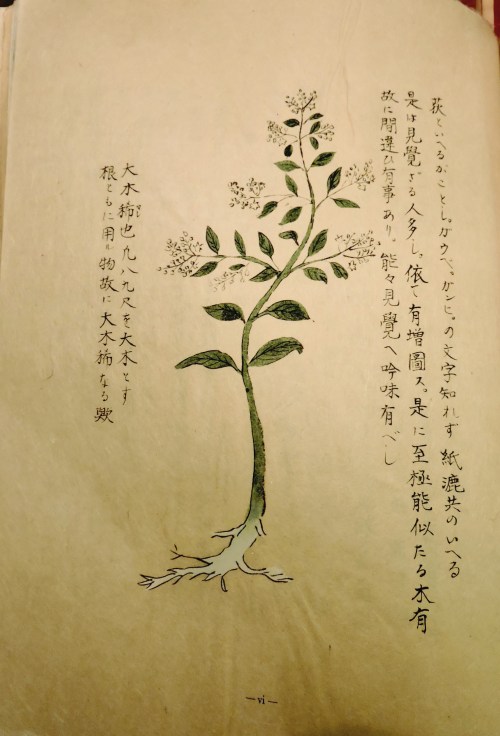 荻といへるがことし。ガウベ。ガンヒ。の文字知れず 紙漉共のいへる
是は見覺ざる人多し。依て有増圖ス。是に至極能似たる木有
故に間違ひ有事あり。能々見覺へ吟味有べし
大木稀也 凢八九尺を大木とす
根ともに用ル物故に大木稀なる歟
—vi—